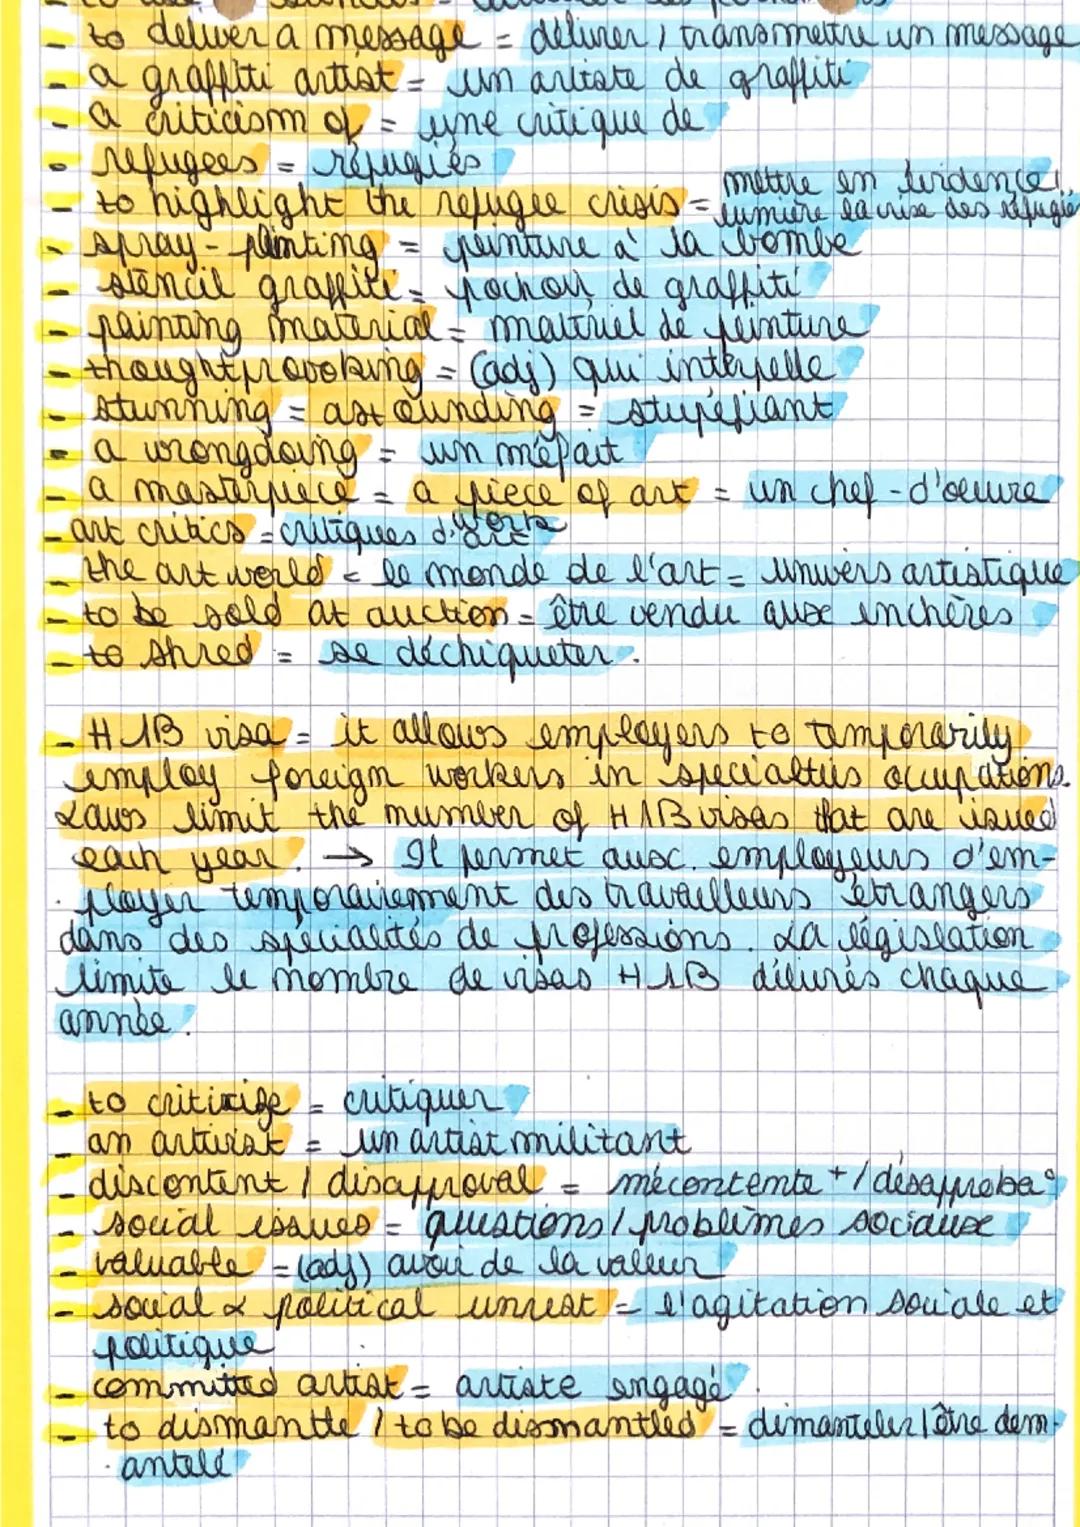 - to deliver a message = délivrer / transmettre un message
- a graffiti artist = un artiste de graffiti
- a criticism of = une critique de
- refugees = réfugiés
mettre en évidence,
- to highlight the refugee crisis = lumière la crise des réfugiés
- spray-painting = peinture à la bombe
- stencil graffiti = pochoir de graffiti
- painting material = matériel de peinture
- thoughtprovoking = (adj) qui interpelle
- stunning = astounding = stupéfiant
- a wrongdoing = un méfait
- a masterpiece = a piece of art = un chef-d'oeuvre
work
- art critics = critiques d'art
- the art world = le monde de l'art = univers artistique
- to be sold at auction = être vendu aux enchères
- to shred = se déchiqueter.
- H1B visa = it allows employers to temporarily
employ foreign workers in specialties occupations.
Laws limit the number of H1B visas that are issued
each year. → Il permet aux employeurs d'em-
ployer temporairement des travailleurs étrangers
dans des spécialités de professions. La législation
limite le nombre de visas H1B délivrés chaque
année.
- to criticize = critiquer
- an artivist = un artist militant
- discontent / disapproval = mécontente + / désapproba°
- social issues = questions / problèmes sociaux
- valuable = (adj) avoir de la valeur
- social & political unrest = l'agitation sociale et
politique
- committed artist = artiste engagé
- to dismantle / to be dismantled = démanteler / être dém-
antelé